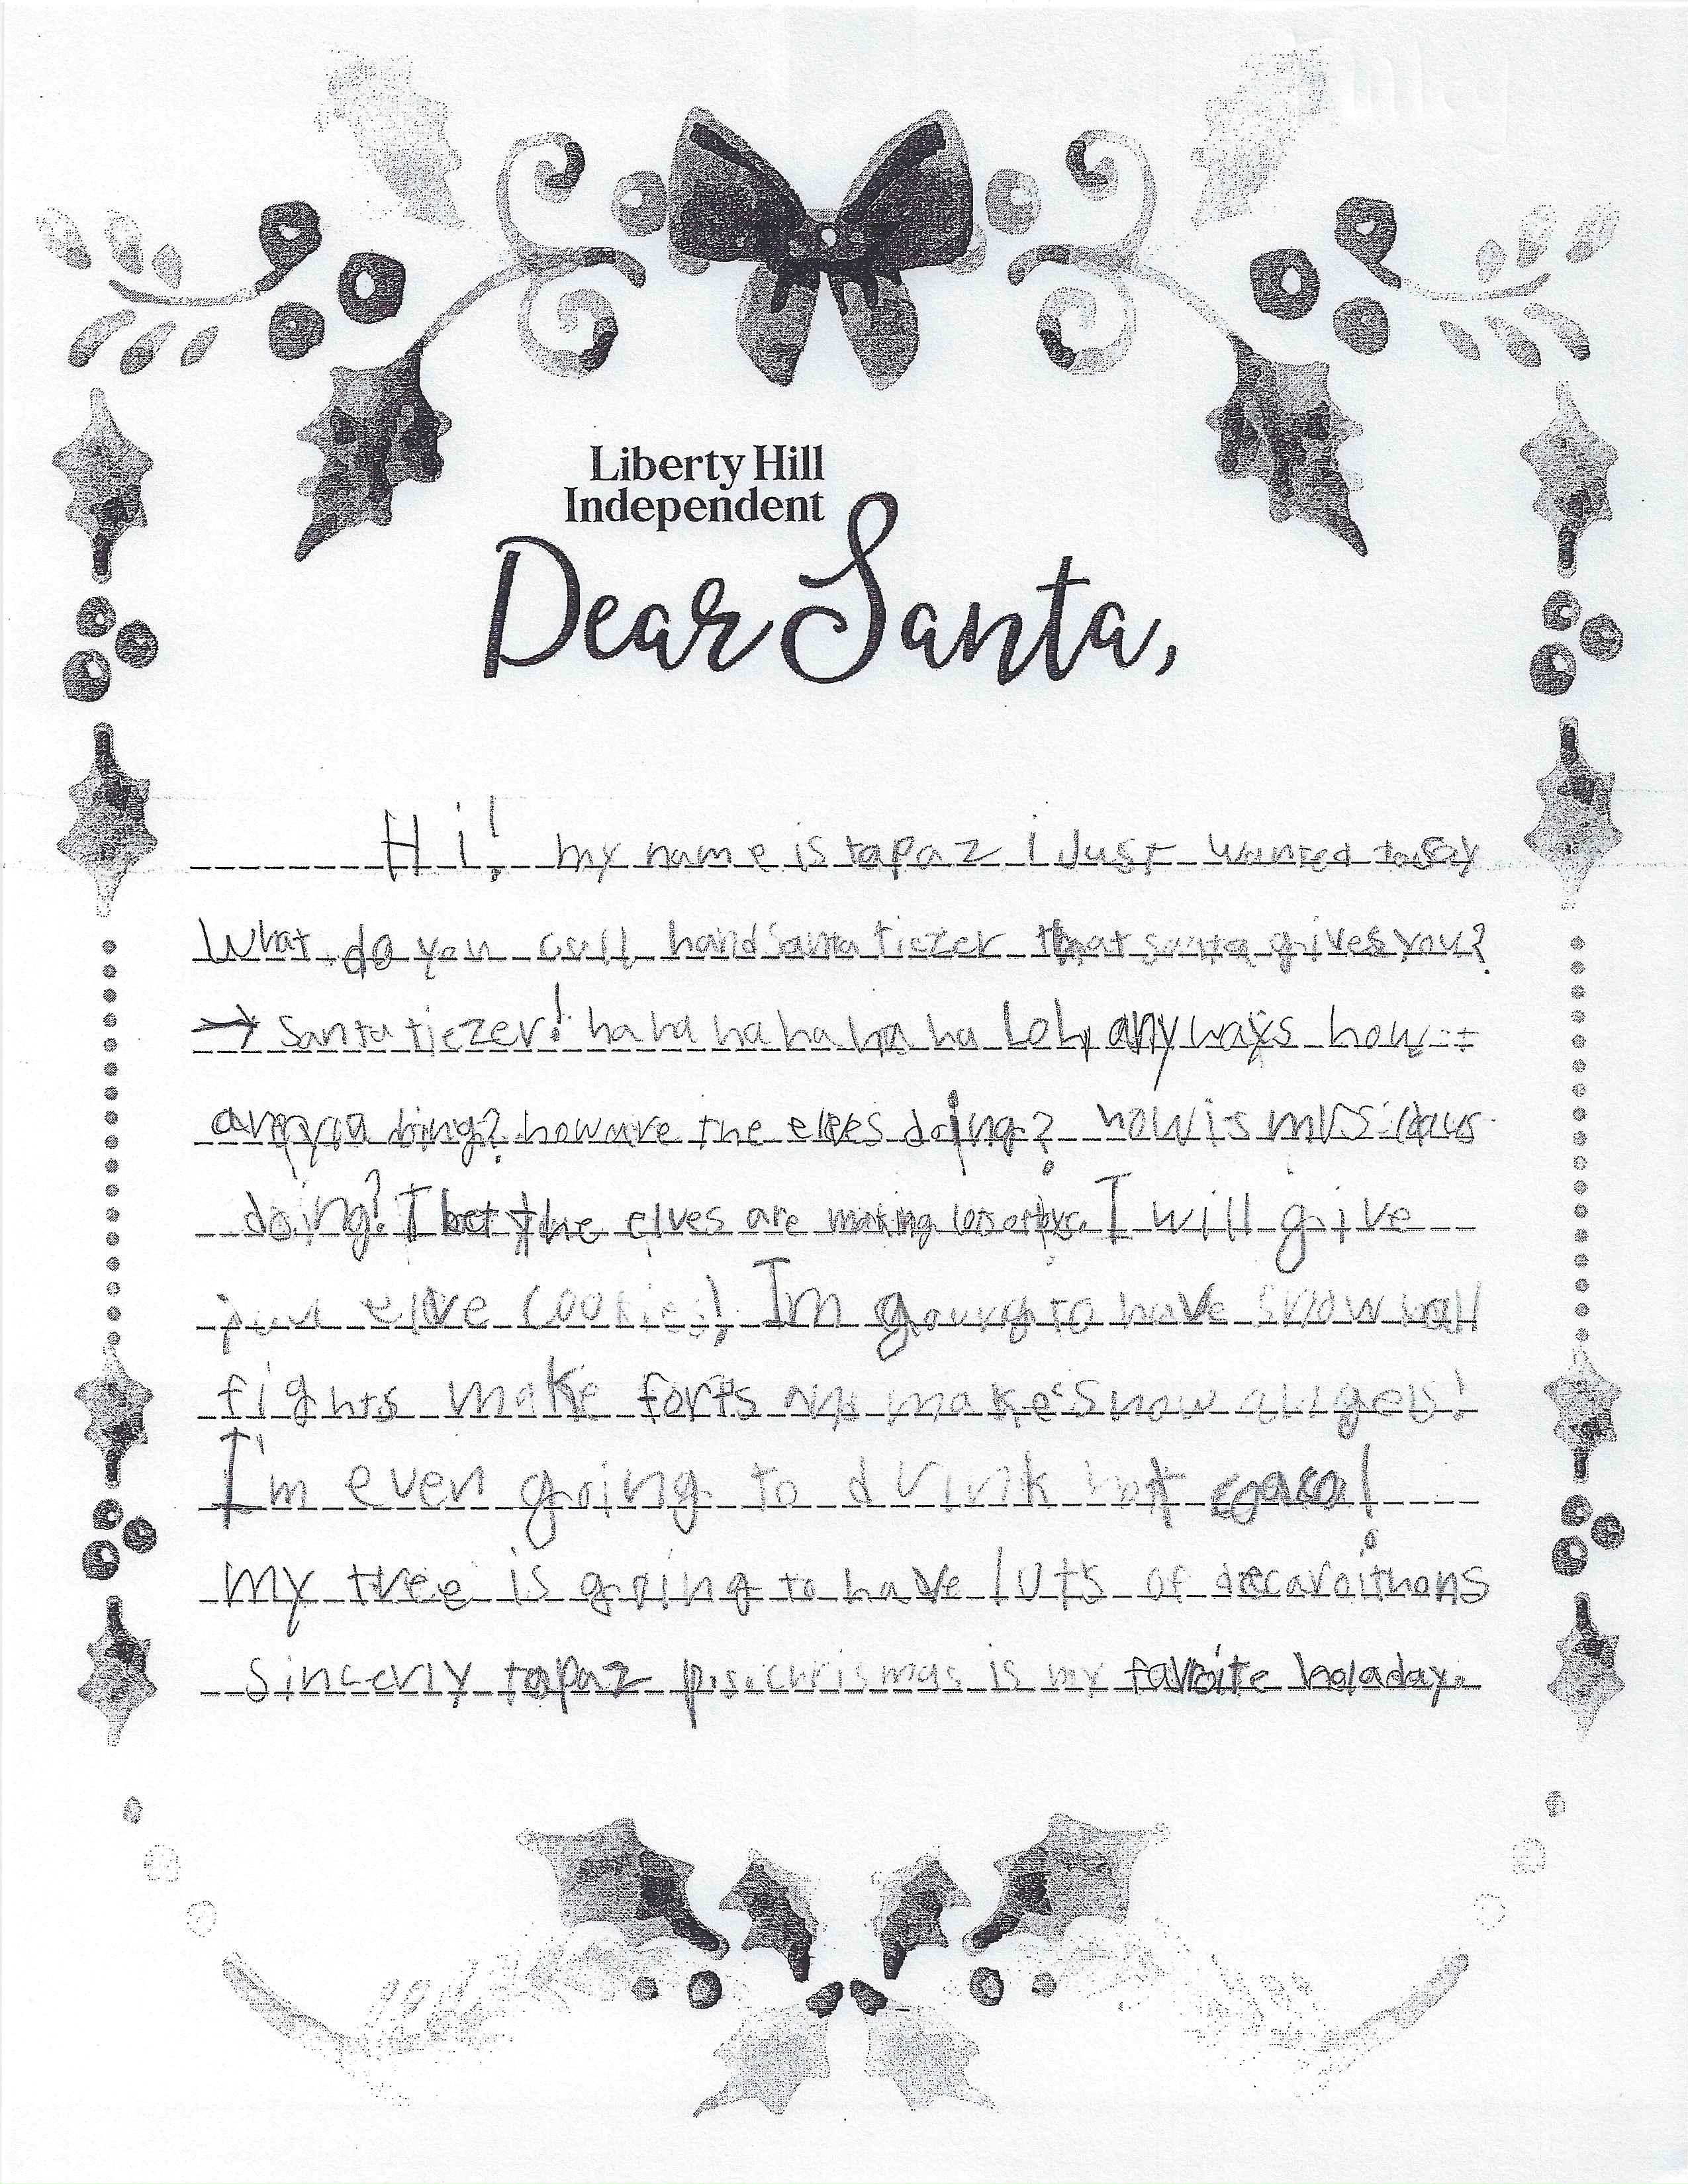 Liberty Hill
Independent
Dear Santa,
Hi! my name is tapaz i Just wanted to say
What do you call hand Santa tiezer that santa gives you?
→ Santa tiezer! ha ha ha ha ha ha Lol, any ways how
are you doing? how are the elves doing? how is mrs. claus
doing? I bet the elves are making lots of toys. I will give
your elve cookies! Im going to have snow ball
fights make forts make snow angels!
I'm even going to drink hot coco!
my tree is going to have lots of decaraithons
Sincerly tapaz p.s. chrismas is my favroite holaday.